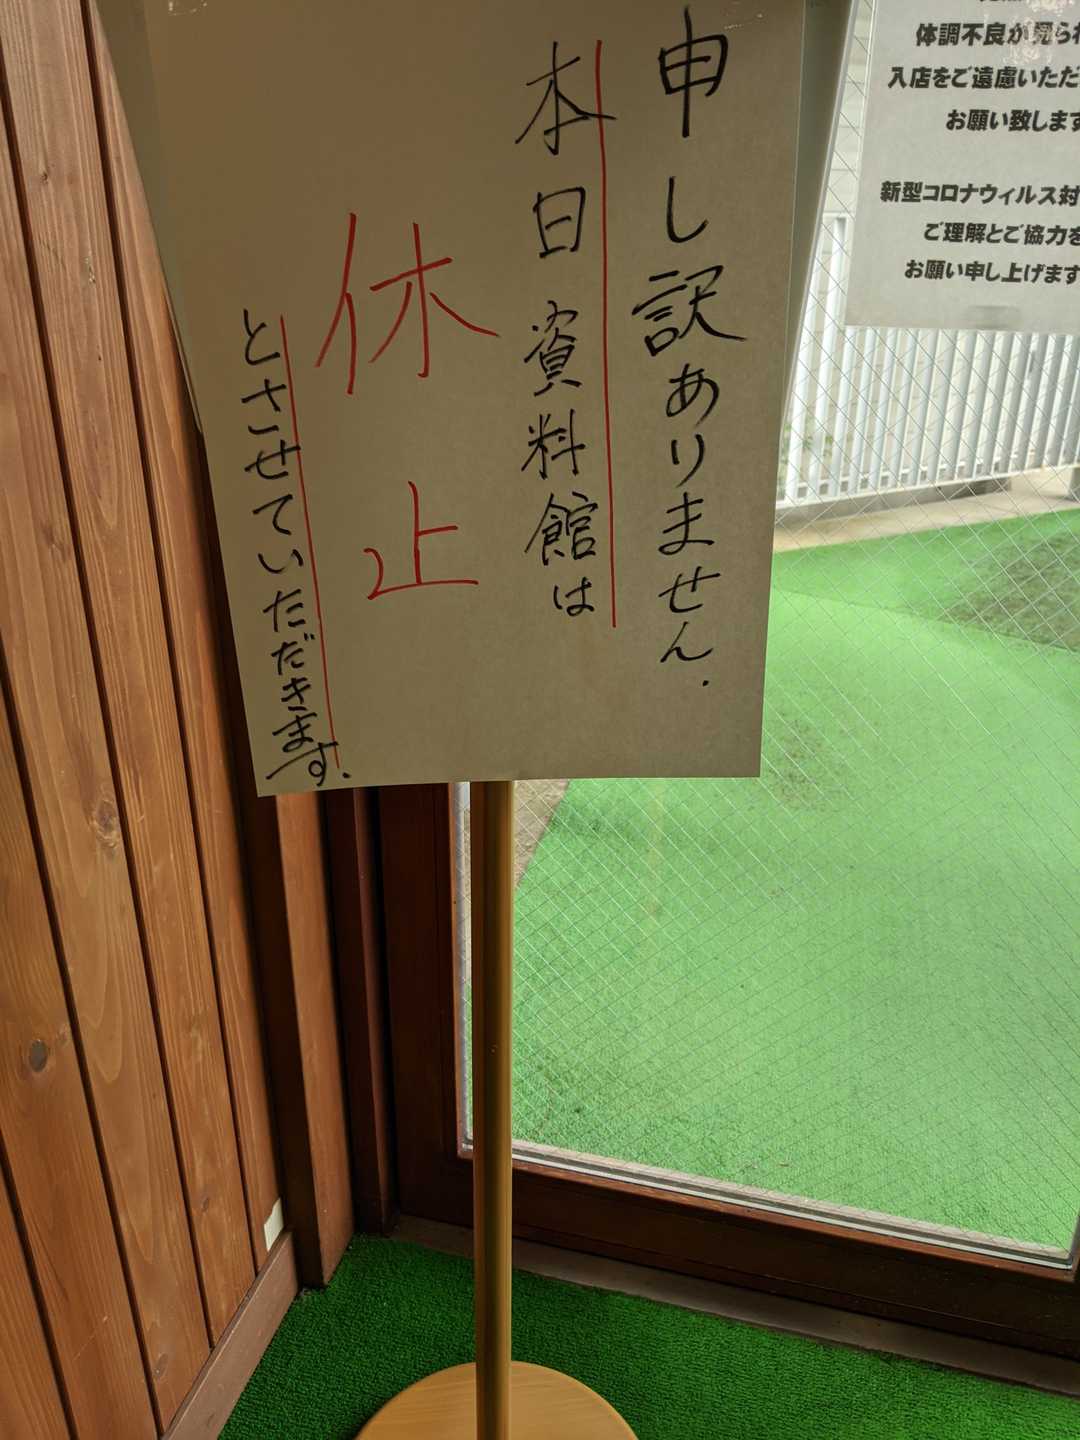 申し訳ありません.
本日資料館は
休止
とさせていただきます.
体調不良が見られ
入店をご遠慮いただ
お願い致します
新型コロナウィルス対
ご理解とご協力を
お願い申し上げます